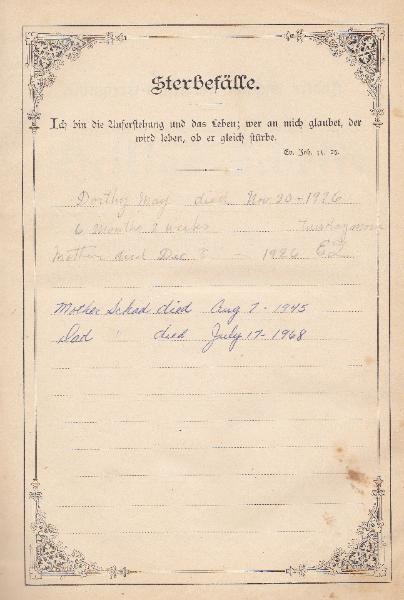 Sterbefälle.
Ich bin die Auferstehung und das Leben; wer an mich glaubet, der
wird leben, ob er gleich stürbe.
Ev. Joh. 11. 25.
Dorthy May died Nov. 20 - 1926
6 months 2 weeks
Mother died Dec 8 - 1926
Mother Schad died Aug 7 - 1945
Dad " died July 17 - 1968